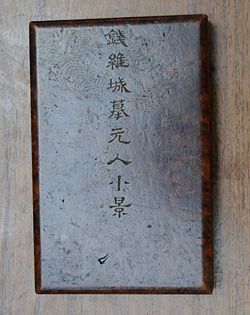 錢維城摹元人小景